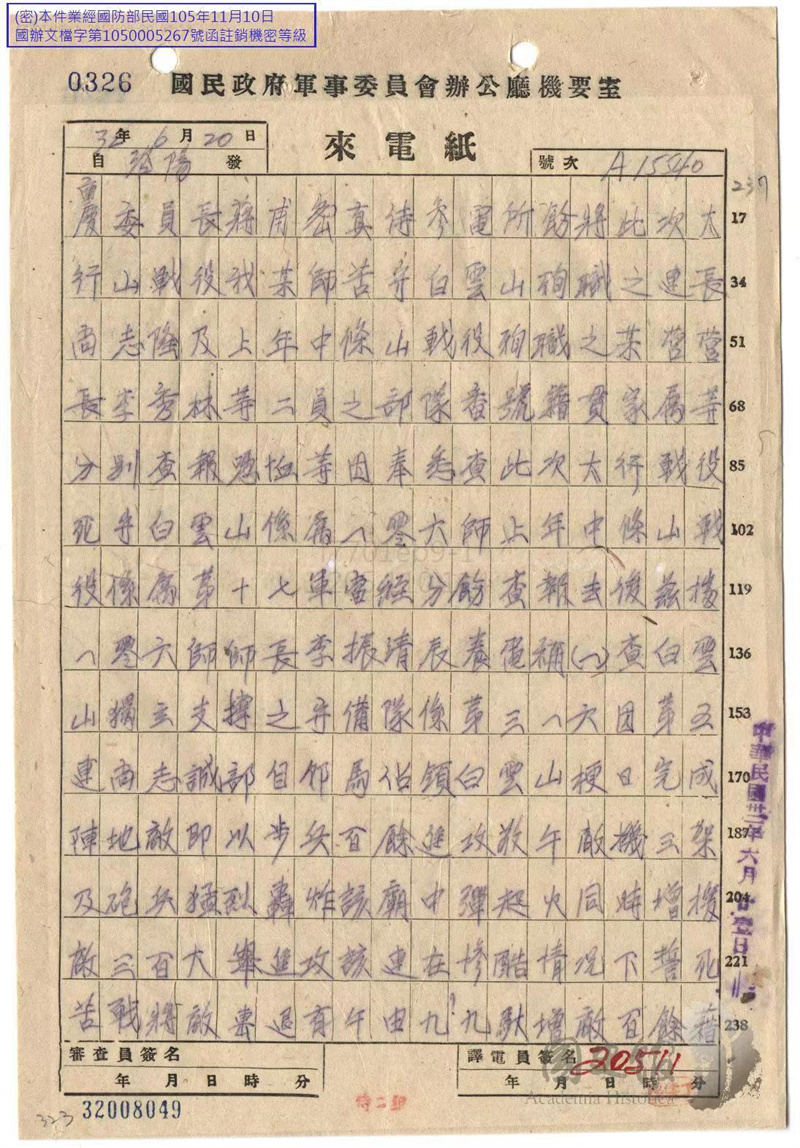 (密)本件業經國防部民國105年11月10日
國辦文檔字第1050005267號函註銷機密等級
0326 國民政府軍事委員會辦公廳機要室
32年6月20日
自 發
來電紙
號次 A15540
237
重慶委員長蔣甫密真待參電所飭將此次太 17
行山戰役我某師苦守白雲山殉職之連長 34
尚志隆及上年中條山戰役殉職之某營營 51
長李秀林等二員之部隊番號籍貫家屬等 68
分別查報憑恤等因奉悉查此次太行戰役 85
死守白雲山係屬一零六師上年中條山戰 102
役係屬第十七軍當經分飭查報去後茲據 119
一零六師師長李振清辰養電稱(一)查白雲 136
山獨立支撐之守備隊係第三一六團第五 153
連尚志誠部自邻馬佔領白雲山梗日完成 170
陣地敵即以步兵百餘進攻敬午敵機三架 187
及砲兵猛烈轟炸該廟中彈起火同時增援 204
敵三百大舉進攻該連在慘酷情況下誓死 221
苦戰將敵擊退有午由九?九馱增敵百餘藉 238
中華民國卅二年六月廿壹日
審查員簽名
年 月 日 時 分
譯電員簽名 20511
年 月 日 時 分
323 32008049
特二組
Academia Historica